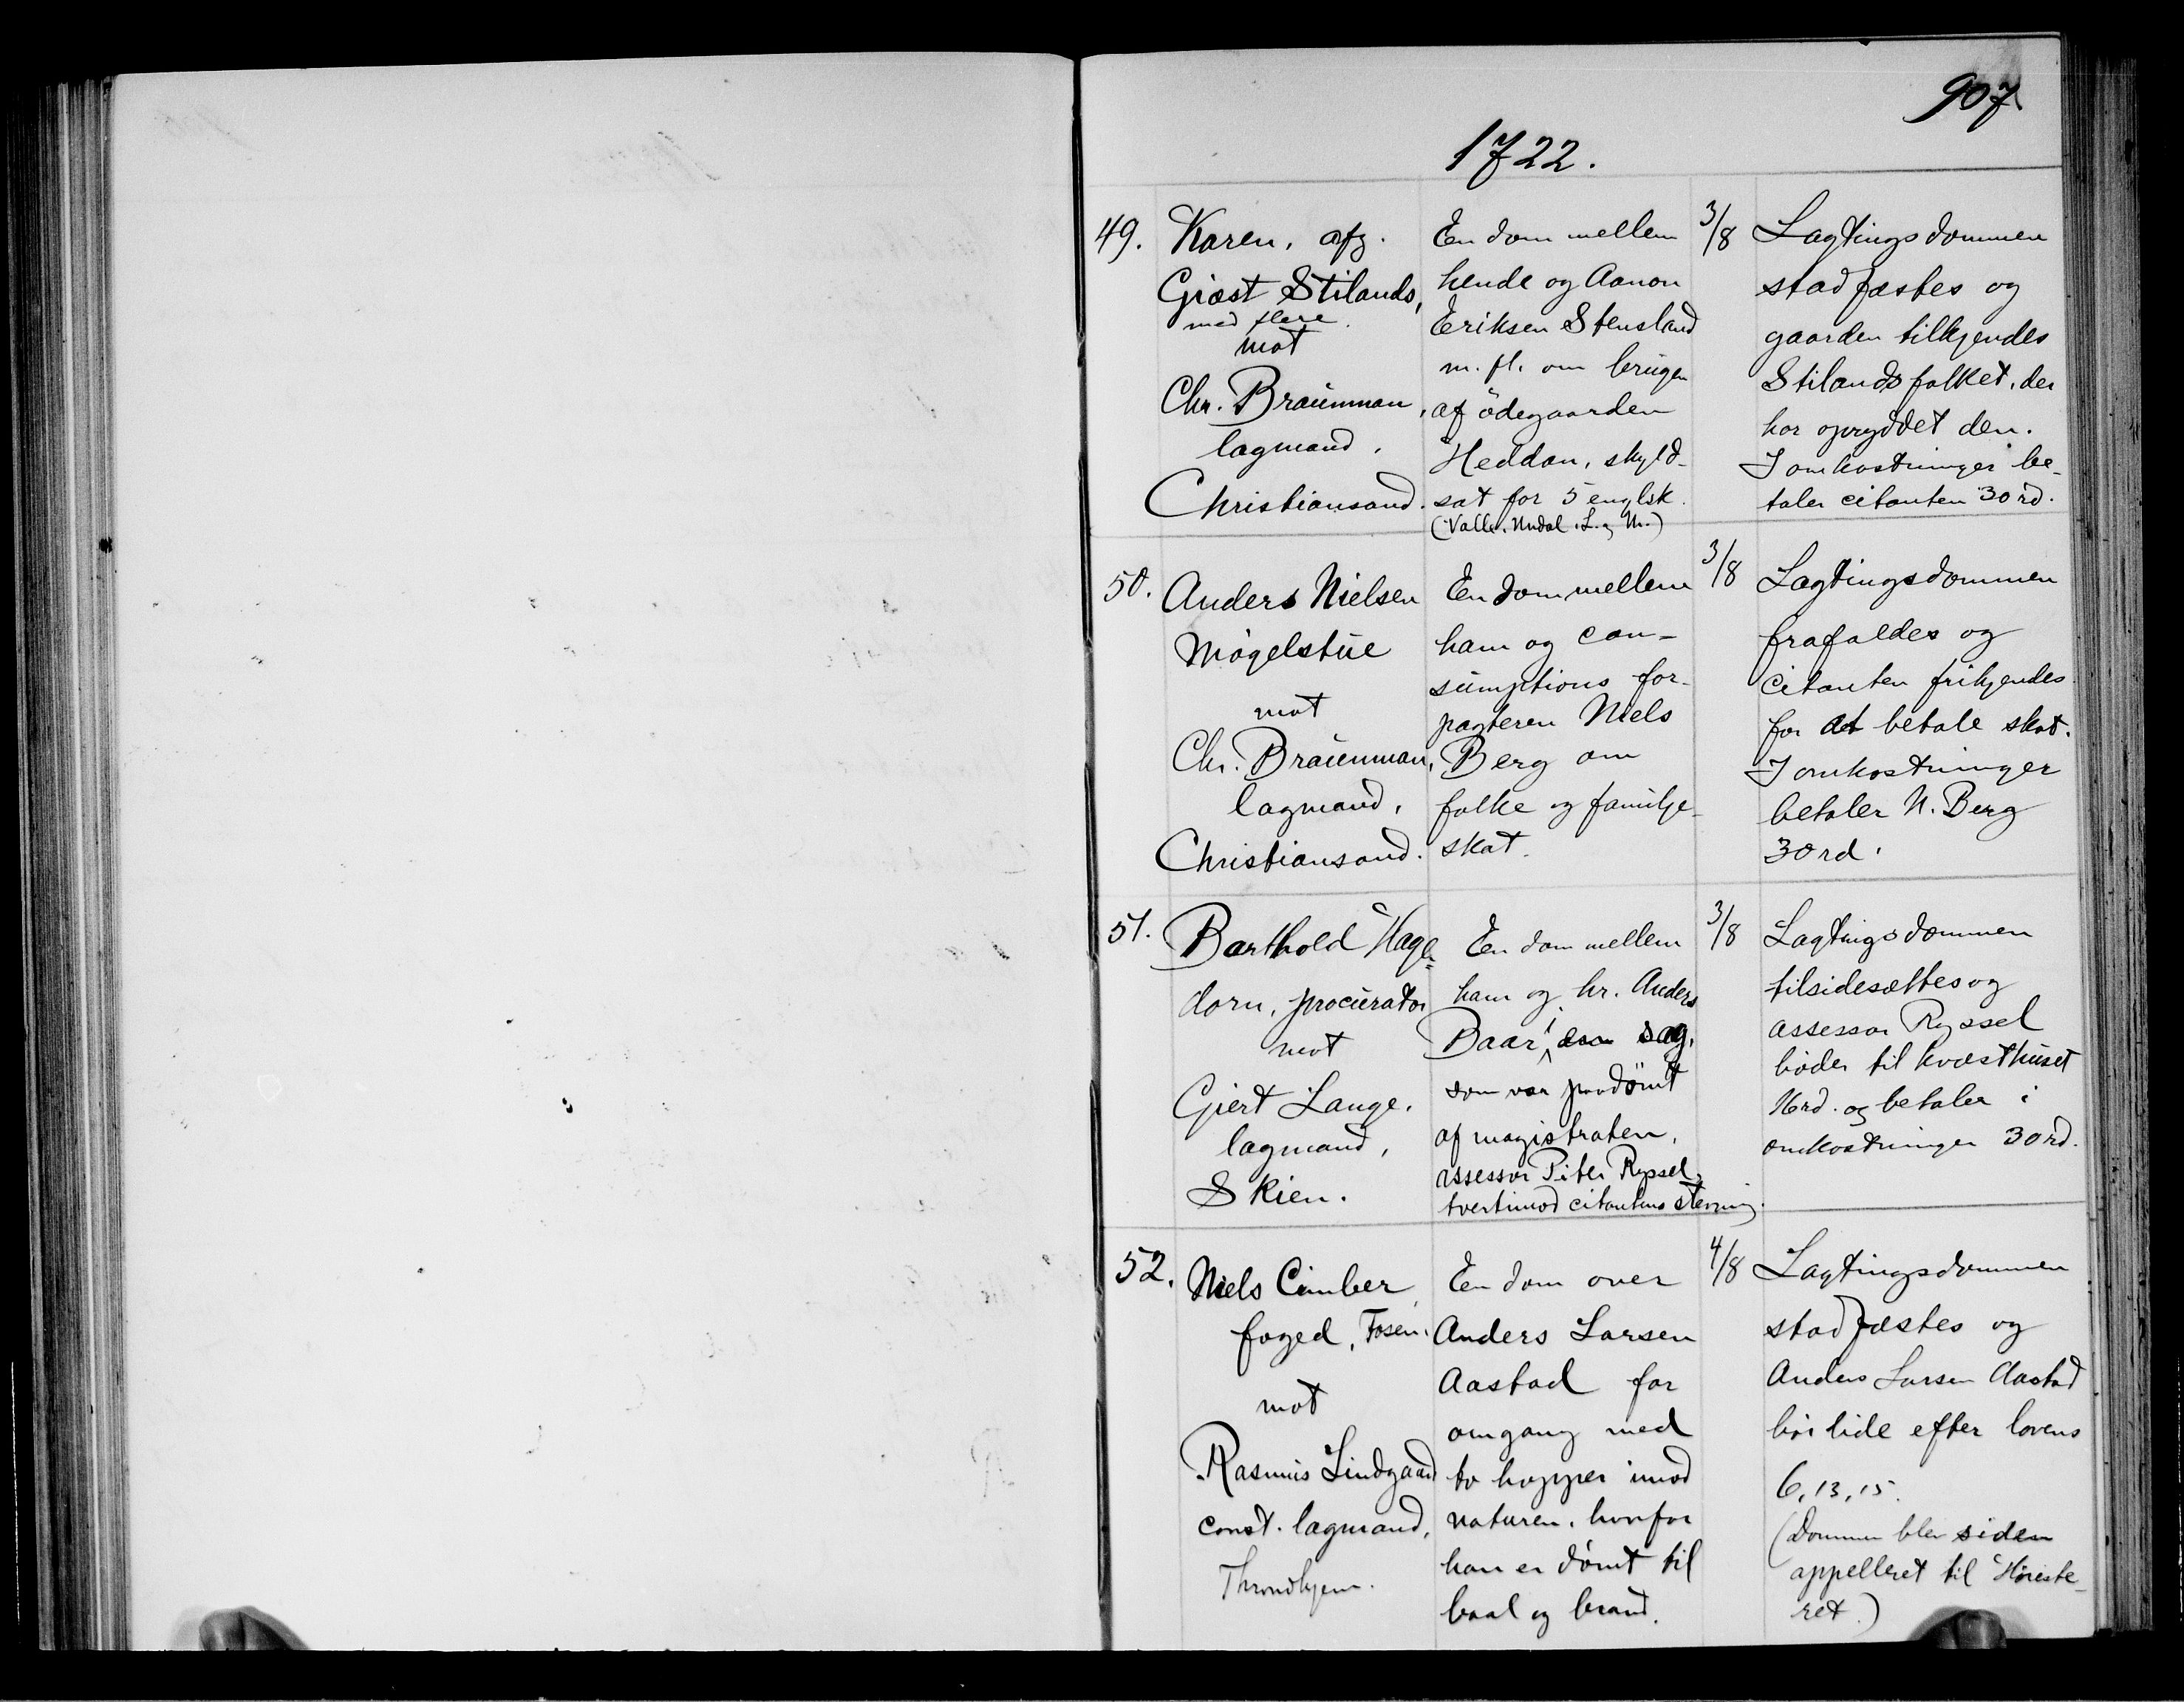 907
1722.
49.
Karen, afg.
Giæst Stilands,
med flere
mot
Chr. Braünman,
lagmand,
Christiansand.
En dom mellem
hende og Aanon
Eriksen Stensland
m. fl. om brügen
af ödegaarden
Heddan, skyld-
sat for 5 englsk.
(Valle. Undal. L. og M.)
3/8
Lagtingsdommen
stadfæstes og
gaarden tilkjendes
Stilandsfolket, der
har opryddet den.
I omkostninger be-
taler citanten 30 rd.
50.
Anders Nielsen
Mögelstüe
mot
Chr. Braünman,
lagmand,
Christiansand.
En dom mellem
ham og con-
sümptions for-
pagteren Niels
Berg om
folke og familje-
skat.
3/8
Lagtingsdommen
frafaldes og
Citanten frikjendes
for at betale skat.
I omkostninger
betaler N. Berg
30 rd.
51.
Barthold Hage-
dorn, procürator
mot
Giert Lange,
lagmand,
Skien.
En dom mellem
ham og hr. Anders
Baar i en sag,
som var paadömt
af magistraten,
assessor Piter Ryssel,
tvertimod citantens stevning.
3/8
Lagtingsdommen
tilsidesættes og
assessor Ryssel
böder til kvæsthüset
16 rd. og betaler i
omkostninger 30 rd.
52.
Niels Cimber,
foged, Fosen.
mot
Rasmüs Lindgaard
const. lagmand,
Throndhjem.
En dom over
Anders Larsen
Aastad for
omgang med
to hopper imod
naturen, hvorfor
han er dömt til
baal og brand.
4/8
Lagtingsdommen
stadfæstes og
Anders Larsen Aastad
bör lide efter lovens
6, 13, 15.
(Dommen blev siden
appelleret til Höieste-
ret.)